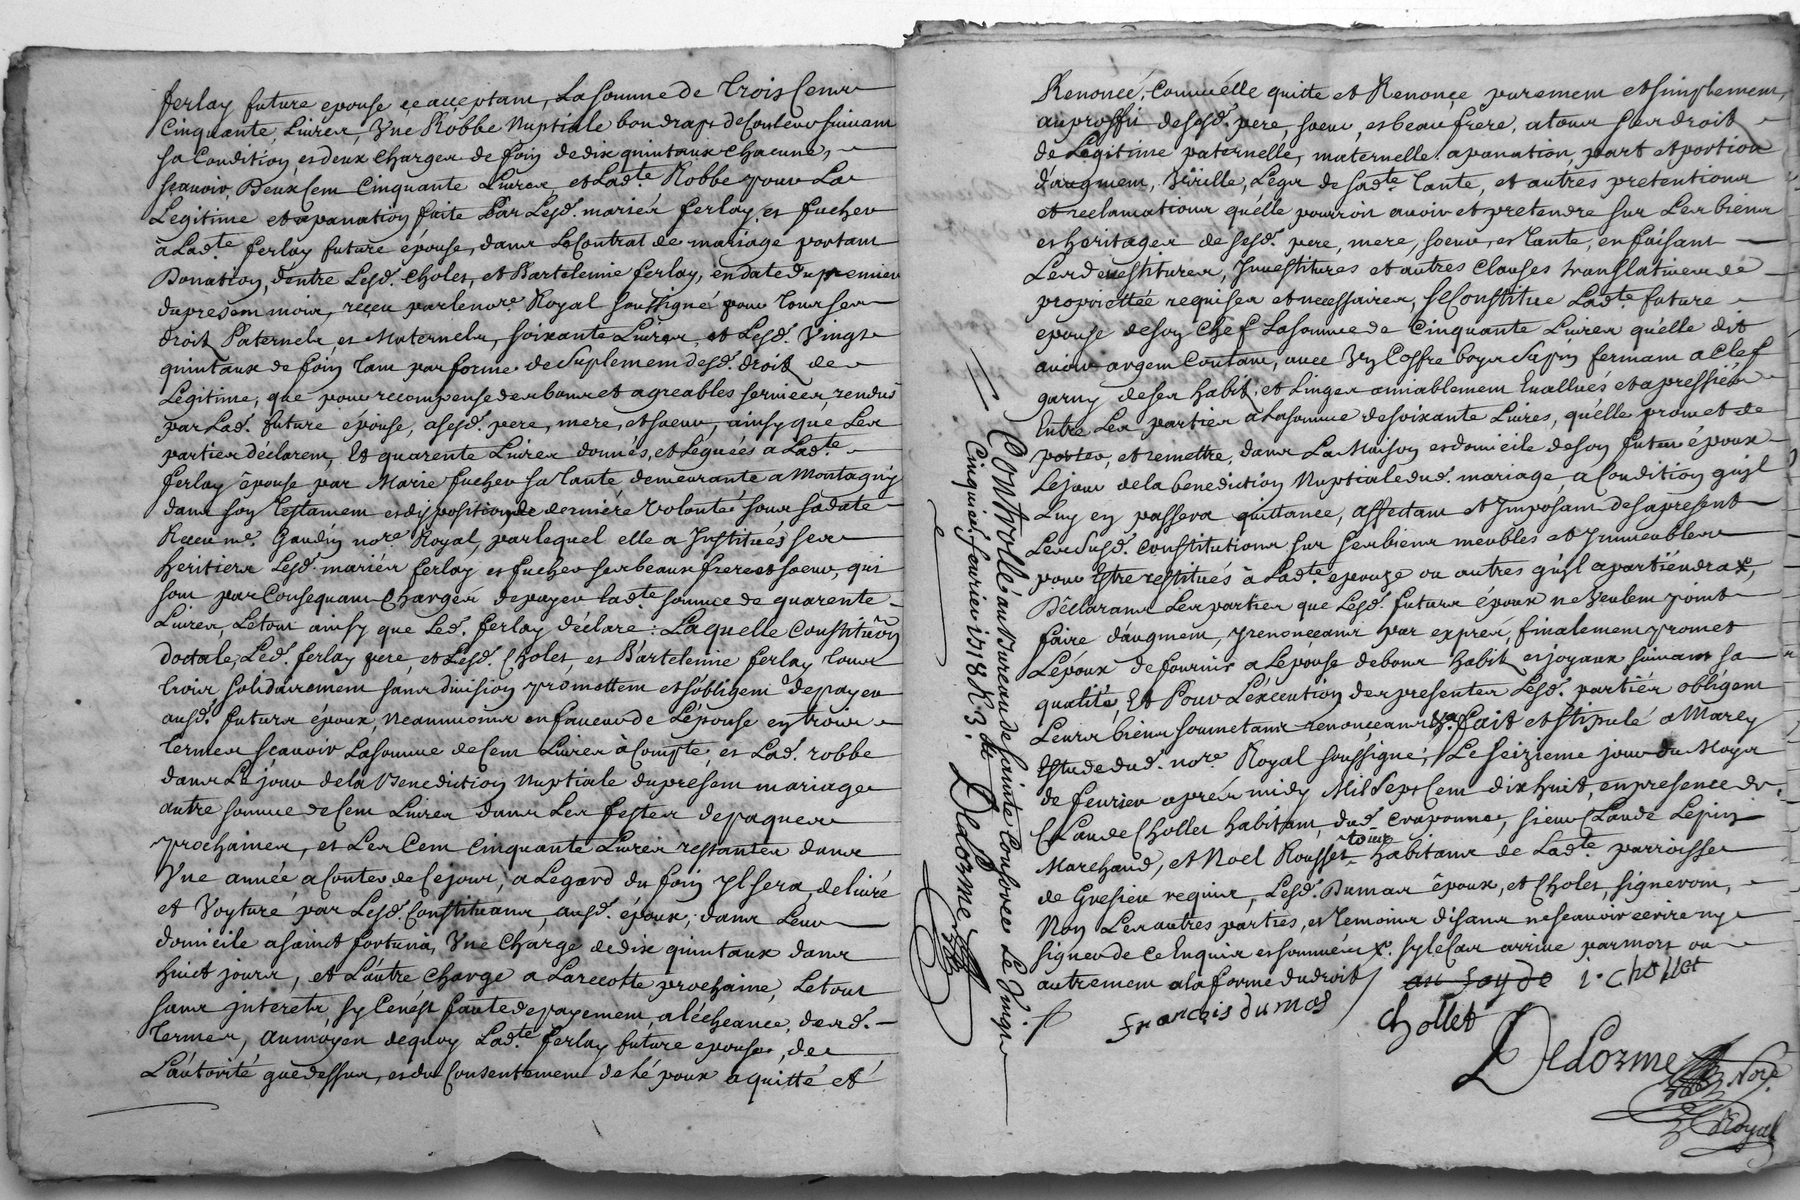 ferlay future epouse ce acceptant, La somme de Trois Cent
Cinquante Livres, Une Robbe Nuptiale bon drap de Couleur suivant
sa Condition, et deux charges de foin de dix quintaux chacune,
scavoir, Deux Cent Cinquante Livres et Lad.te Robbe pour La
Legitime et apanation faite Par Lesd. mariés ferlay et fucher
à Lad.te ferlay future épouse, dans Le Contrat de mariage portant
Donation, d'entre Lesd. Cholet, et Bartelemie ferlay, en date du premier
du present mois, receu par le no.re Royal soussigné pour tous ses
droits Paternels et Maternels, soixante Livres, et Lesd. Vingt
quintaux de foin Tant par forme de Suplement desd. droits de
Légitime, que pour recompense des bons et agreables services rendus
par Lad. future épouse, a sesd. pere, mere, et soeur, ainsy que Les
parties déclarent, Et quarente Livres donnés, et Legués à Lad.te
ferlay épouse par Marie fucher sa Tante demeurante a Montagny
dans son Testament et disposition de derniére Volonté sous sa date
Receu m.e Gaudin no.re Royal, par lequel elle a Institués ses
héritiers Lesd. mariés ferlay et fucher ses beaux frere et soeur, qui
sont par Consequant Chargés de payer lad.te somme de quarente
Livres, Le tout ainsy que Led. ferlay déclare: Laquelle Constituon
doctale, Led. ferlay pere, et Lesd. Cholet, et Bartelemie ferlay tous
trois solidairement sans division promettent et s'obligent de payer
ausd. futurs époux, neanmoins en faveur de L'épouse en trois
termes scavoir La somme de Cent Livres à Compte, et Lad. robbe
dans Le jour de la Benediction Nuptiale du present mariage
autre somme de Cent Livres dans Les festes de paques
prochaines, et Les Cent Cinquante Livres restantes dans
Une année, a Conter de Ce jour, a L'egard du foin Il sera deliuré
et Voyturé par Lesd. Constituans, ausd. époux, dans Leur
domicile a sainct fortuna, Une Charge de dix quintaux dans
huict jours, et L'autre charge a La recolte prochaine, Le tout
sans interets, sy Ce n'est faute de payement, a l'écheance, desd.
termes, au moyen de quoy Lad.te ferlay future epouse, de
L'autorité que dessus, et du Consentement de l'époux a quitté et
Renoncé, Comme elle quitte et Renonce purement et simplement,
au proffit de sesd. pere, soeur, et beau frere, a tous ses droits
de Legitime paternelle, maternelle, apanation, part et portion
d'augment, Virille, Legs de sad.te tante, et autres pretentions
et reclamations qu'elle pourroit avoir et pretendre sur Les biens
et heritages de sesd. pere, mere, soeur, et tante, en faisant
Les devestitures, Investitures et autres Clauses translatives de
propriettée requises et necessaires, se Constitue Lad.te future
epouse de son Chef La somme de Cinquante Livres qu'elle dit
avoir argent Contant, avec Un Coffre boys Sapin fermant a Clef
garny de ses habits, et Linges amiablement Evallués et apressiés
Entre Les parties a La somme de soixante Livres, qu'elle promet de
porter, et remettre, dans La Maison et domicile de son futur époux
Le jour de la benediction Nuptiale dud. mariage a Condition qu'il
Luy en passera quittance, affectant et Imposant des a present
Les susd. Constitutions sur ses biens meubles et Immeubles
pour Estre restitués à Lad.te epouze ou autres qu'il apartiendra X,
Déclarans Les parties que Lesd. futurs époux ne Veulent point
faire d'augment, y renonceant par exprés, finalement promet
L'époux de fournir a L'épouse de bons habits et joyaux suivant sa
qualité, Et Pour L'exécution des presentes Lesd. parties obligent
Leurs biens soumettans renonceans &a. fait et stipulé a Marcy
Estude dud. no.re Royal soussigné, Le seizieme jour du Moys
de feurier aprés midy Mil Sept Cent dix huit, en presence de
Claude Chollet habitant dud. Craponne, sieur Claude Lepin
Marchand, et Noel Rousset habitans de Lad.te parroisse
de Gresieu requis, Lesd. Dumas époux, et Cholet, signeront,
Non Les autres parties, et temoins disans ne scavoir ecrire ny
signer de Ce Enquis et sommés X. sy le Cas arrive par mort ou
autrement a la forme du droit
i. chollet
francois dumas
chollet
Delorme
No.re
Royal
Controllé au Bureau de Sainte Consorce Le Vingt
Cinquiéme feurier 1718 R. 3.
Delorme